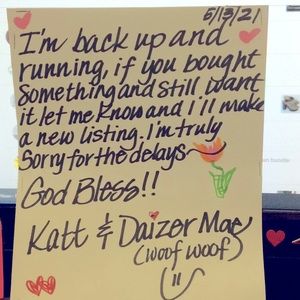 5/13/21
I'm back up and
running, if you bought
Something and still want
it let me know and I'll make
a new listing. I'm truly
Sorry for the delays~
God Bless!!
Katt & Daizer Mae
(woof woof)